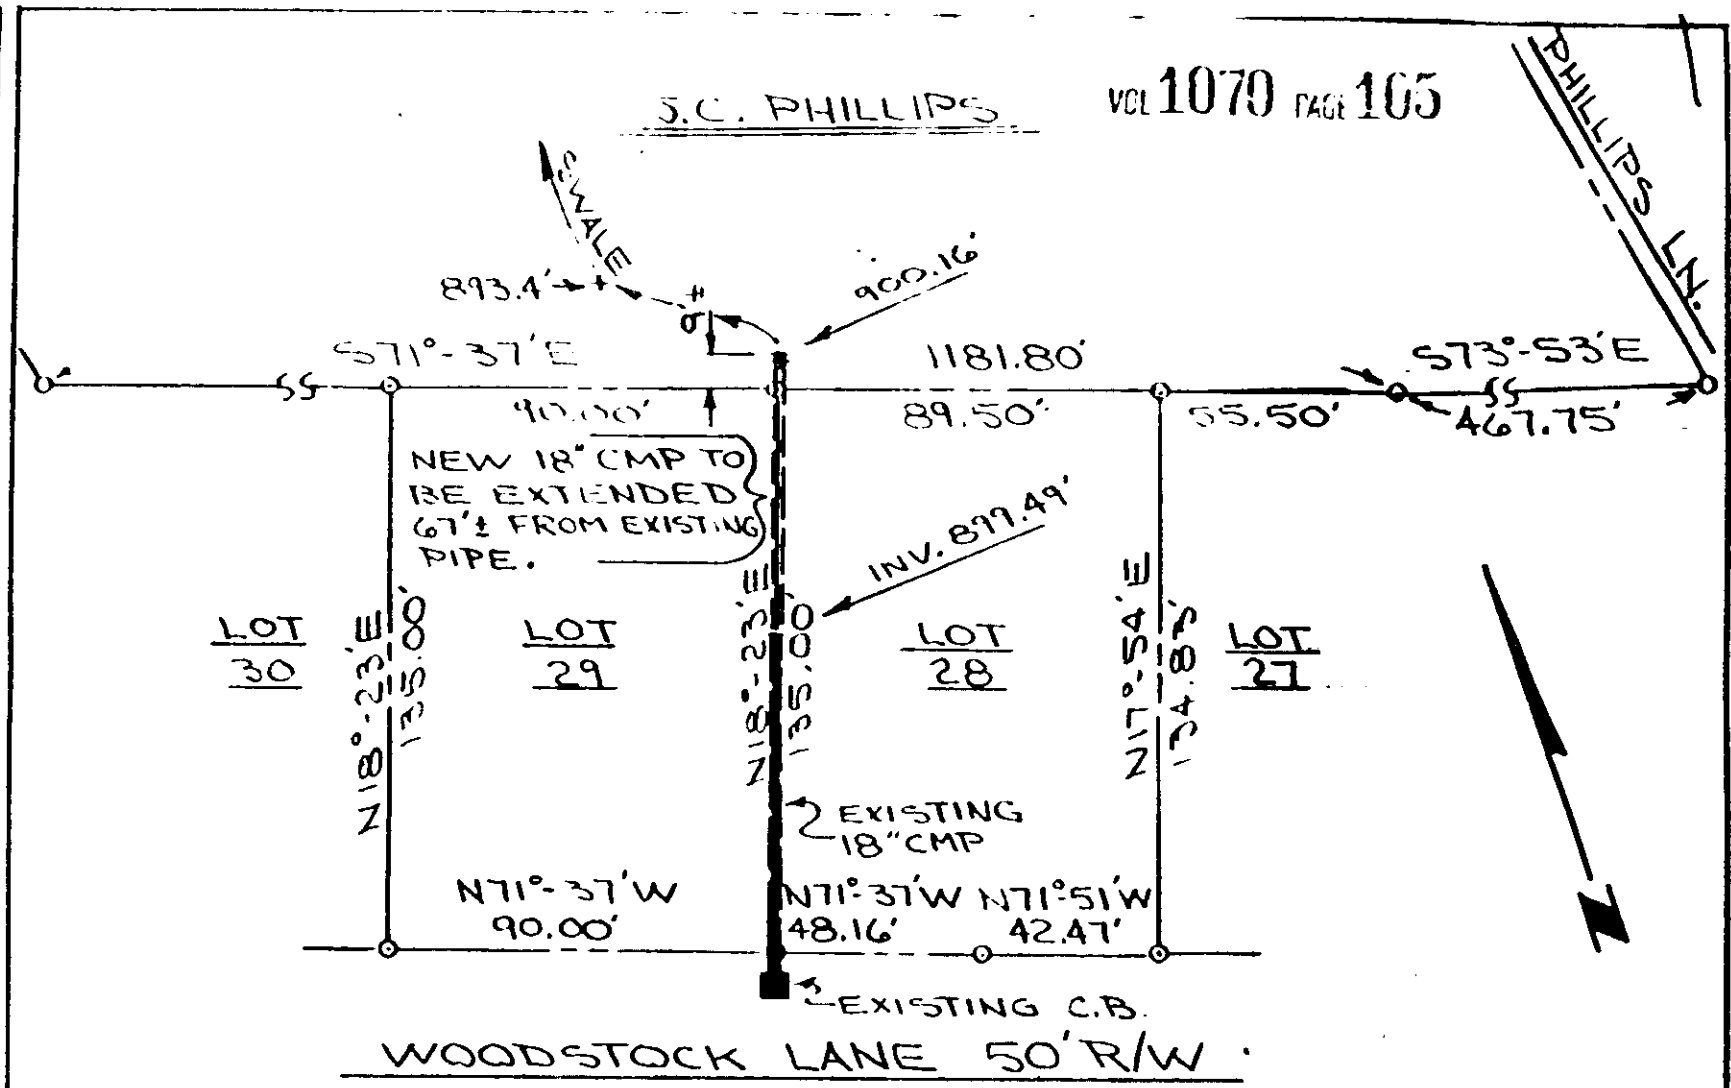 J.C. PHILLIPS
VOL 1070 PAGE 165
PHILLIPS LN.
SWALE
893.4'
9'±
900.16'
S71°-37'E
1181.80'
S73°-53'E
90.00'
89.50'
55.50'
467.75'
NEW 18" CMP TO
BE EXTENDED
67'± FROM EXISTING
PIPE.
INV. 899.49'
LOT
30
N18°-23'E
135.00'
LOT
29
N18°-23'E
135.00'
LOT
28
N17°-54'E
134.83'
LOT
27
EXISTING
18" CMP
N71°-37'W
90.00'
N71°-37'W
48.16'
N71°-51'W
42.47'
N
EXISTING C.B.
WOODSTOCK LANE 50' R/W